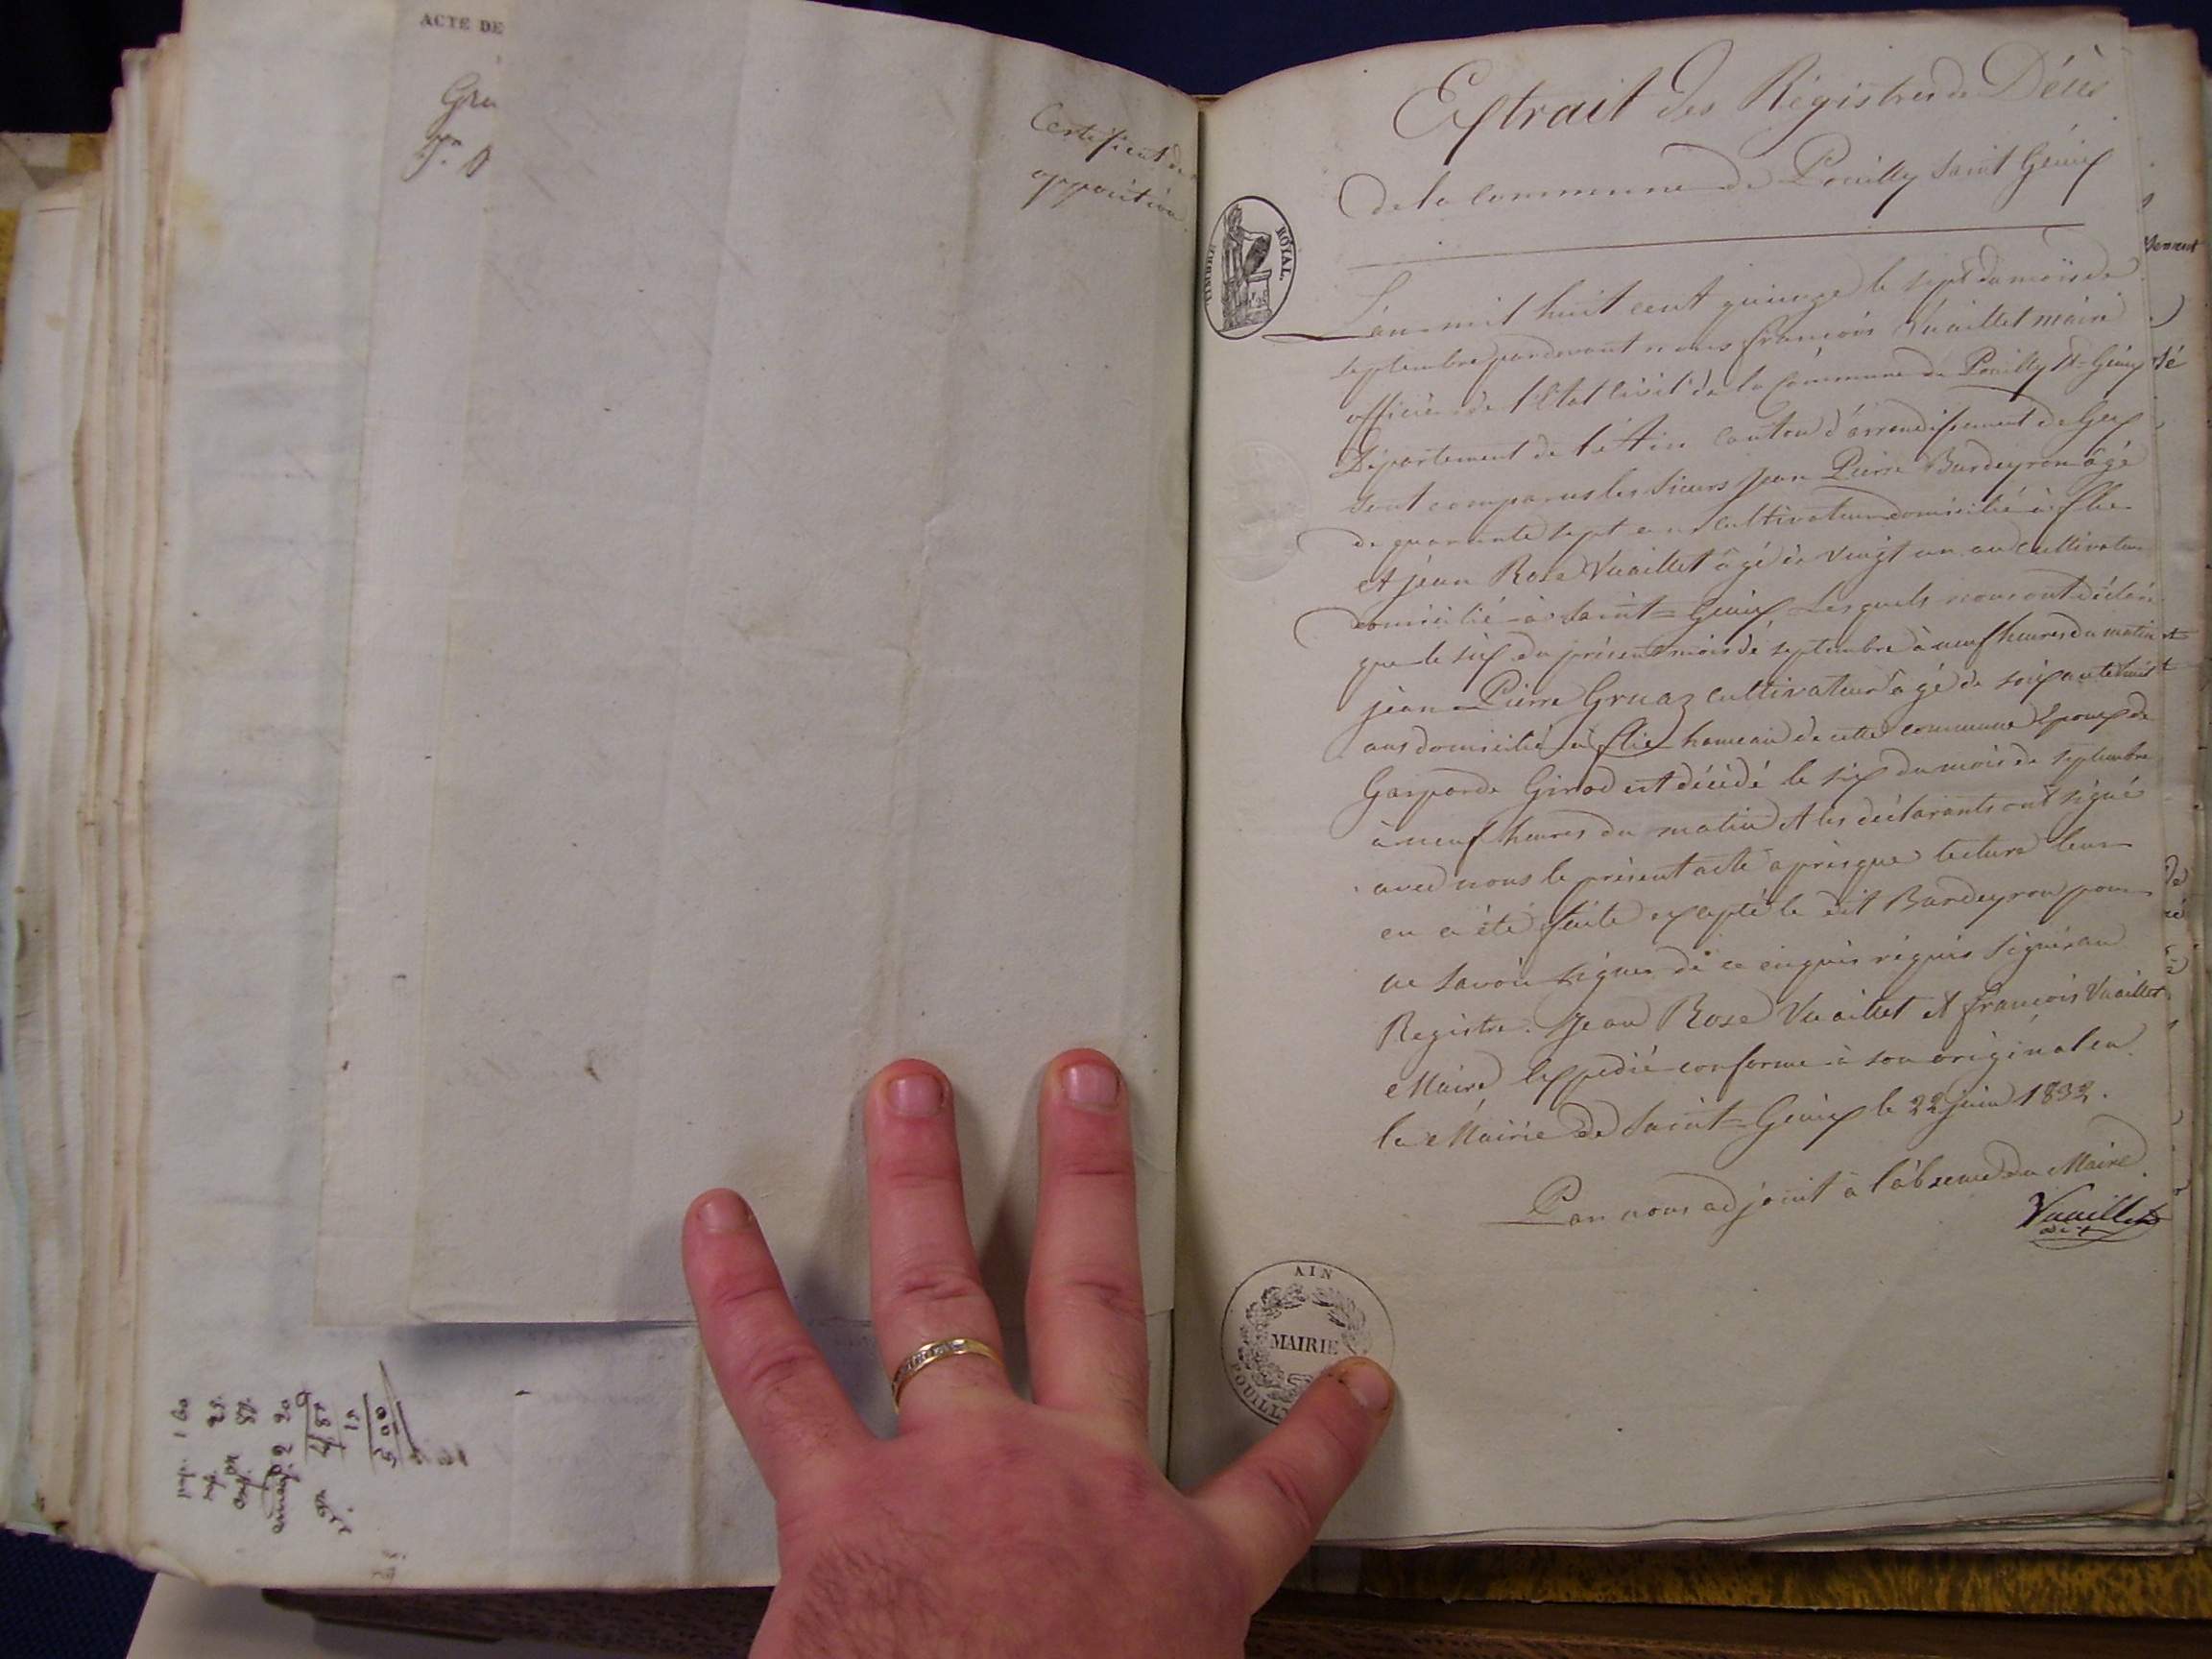 ACTE DE
Gru
Certificat de
opposition
Extrait des Régistres de Décès
de la Commune de Pouilly Saint Genix
TIMBRE ROYAL.
L'an mil huit cent quinze le sept du mois de
septembre pardevant nous françois Vuaillet maire
officier de l'Etat Civil de la Commune de Pouilly St-Genix
Département de l'Ain Canton d'arrondissement de Gex
sont comparus les sieurs Jean Pierre Burdeyron âgé
de quarante sept ans cultivateur domicilié à flie
et jean Rose Vuaillet âgé de vingt un an cultivateur
domicilié à Saint-Genix Lesquels nous ont déclaré
que le six du présent mois de septembre à neuf heures du matin
jean Pierre Gruaz cultivateur âgé de soixante huit
ans domicilié à flie hameau de cette commune Epoux de
Gasparde Girod est décédé le six du mois de septembre
à neuf heures du matin et les déclarants ont signé
avec nous le présent acte après que lecture leur
en a été faite excepté le dit Bardeyron pour
ne savoir signer de ce enquis réquis signés au
Registre. Jean Rose Vuaillet et françois Vuaillet
Maire Expedié conforme à son original en
la Mairie de Saint-Genix le 22 juin 1832.
Par nous adjoint à l'absence du Maire
Vuaillet
adjt
AIN
MAIRIE
POUILLY
1 60
25
2 20
4 85
15
5 00